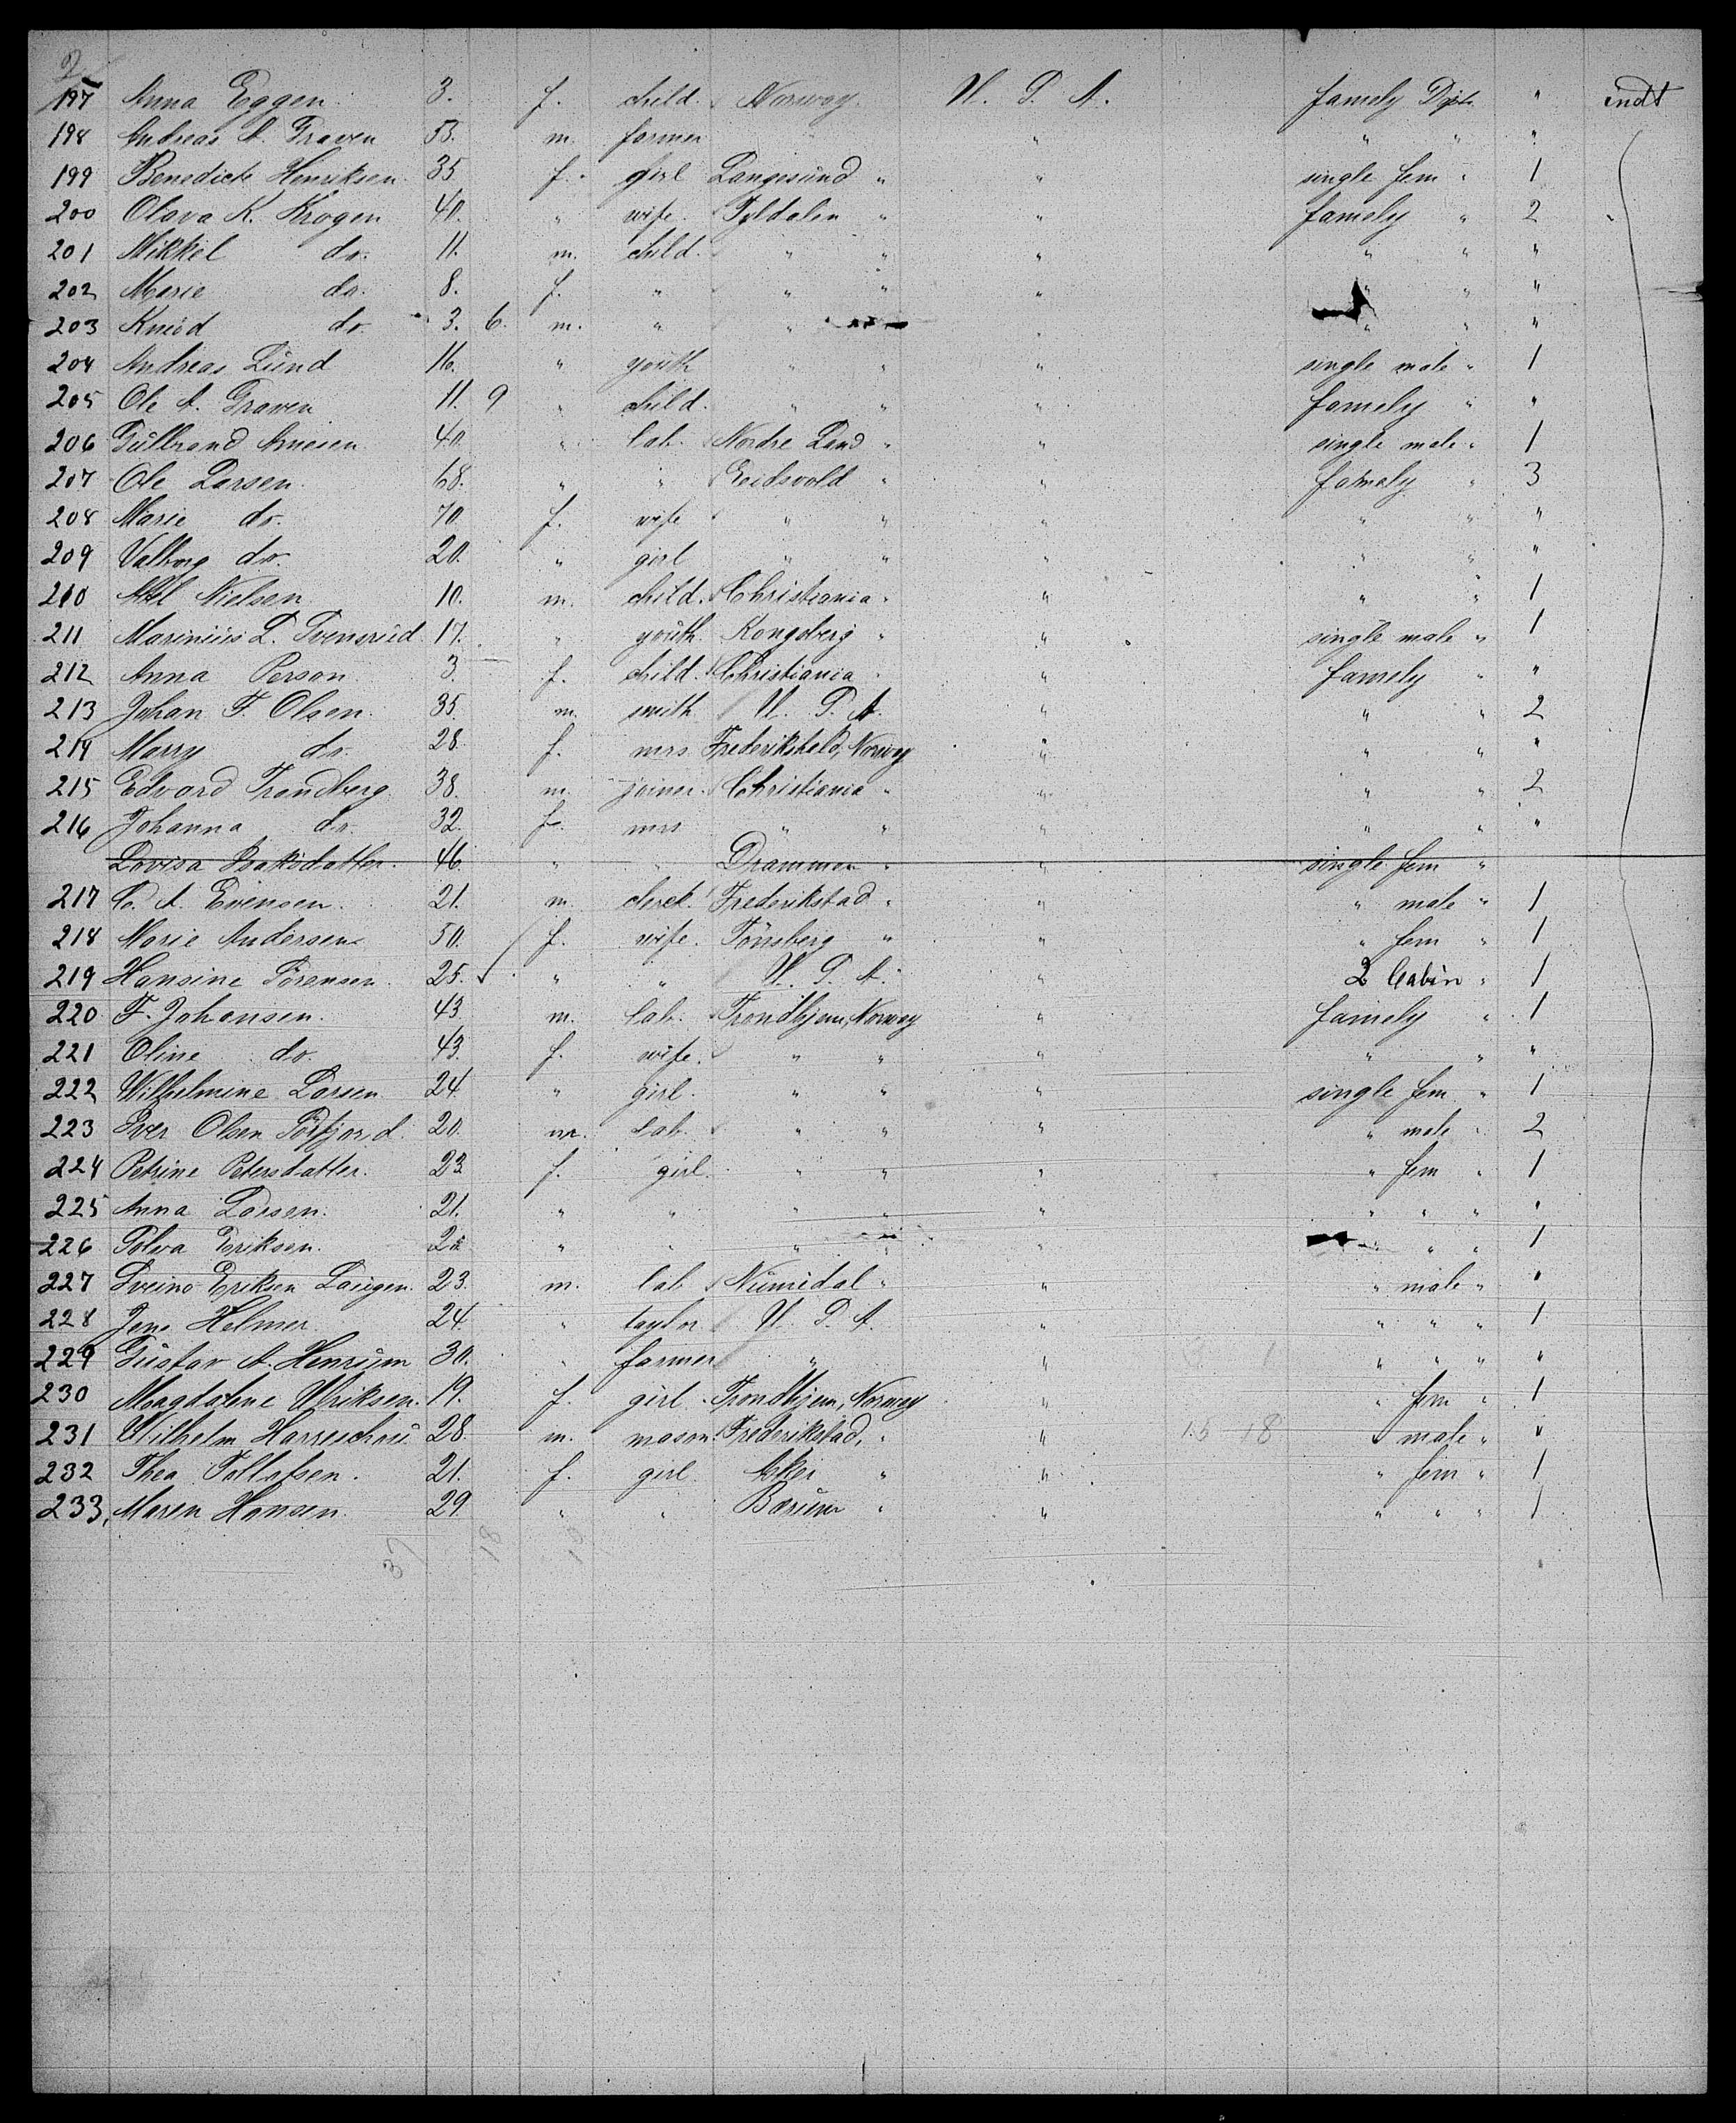 2
197 Anna Eggen 3. f. child. Norway. U. S. A. famely Dpt. " endt
198 Andreas A. Graven 53. m. farmer " " " "
199 Benedicte Henriksen 35 f. girl Langesund " " single fem " 1
200 Olava K. Krogen 40. " wife. Tyldalen " " famely " 2
201 Mikkel do. 11. m. child. " " " " " "
202 Marie do. 8. f. " " " " " " "
203 Knud do. 3. 6. m. " " " " " "
204 Andreas Lund 16. " youth " " " single male " 1
205 Ole A. Graven 11. 9 " child. " " " famely " "
206 Gulbrand Arnesen 40. " lab. Nordre Land " " single male " 1
207 Ole Larsen 68. " " Eidsvold " " famely " 3
208 Marie do. 70. f. wife " " " " " "
209 Valborg do. 20. " girl " " " " " "
210 Nielsen 10. m. child. Christiania " " " " 1
211 Marinius L. Svensrud 17. " youth. Kongsberg " " single male " 1
212 Anna Person 3 f. child. Christiania " " famely " "
213 Johan F. Olsen 35. m. smith U. S. A. " " " 2
214 Marry do. 28. f. mrs Frederikshald, Norway " " " "
215 Edvard Trandberg 38. m. joiner. Christiania " " " " 2
216 Johanna do. 32. f. mrs " " " " " "
Lovisa Isaksdatter 46. " " Drammen " single fem "
217 C. A. Evensen. 21. m. clerck. Frederikstad " " " male " 1
218 Marie Andersen 50. f. wife. Tönsberg " " " fem " 1
219 Hansine Sörensen 25. " " U. S. A. " 2 Cabin " 1
220 F. Johansen. 43. m. lab. Trondhjem, Norway " famely " 1
221 Oline do. 43. f. wife. " " " " " "
222 Wilhelmine Larsen 24. " girl. " " " single fem " 1
223 Iver Olsen 20. m. lab. " " " " male " 2
224 Petrine Petersdatter. 23. f. girl. " " " " fem " 1
225 Anna Larsen. 21. " " " " " " " " "
226 Eriksen. " " " " " " " 1
227 Sveino Eriksen Laugen. 23. m. lab Numedal " " " male " "
228 Jens Helmer 24. " taylor U. S. A. " " " " 1
229 Gustav A. 30. " farmer " " " " " "
230 Magdalene Ulriksen. 19. f. girl Trondhjem, Norway " " fem " 1
231 Wilhelm 28. m. mason. Frederikstad, " " 15 18 " male " "
232 Thea Tollefsen. 21. f. girl Asker " " " fem " 1
233, Maren Hansen. 29 " " Bærum " " " " " 1
37 18 19